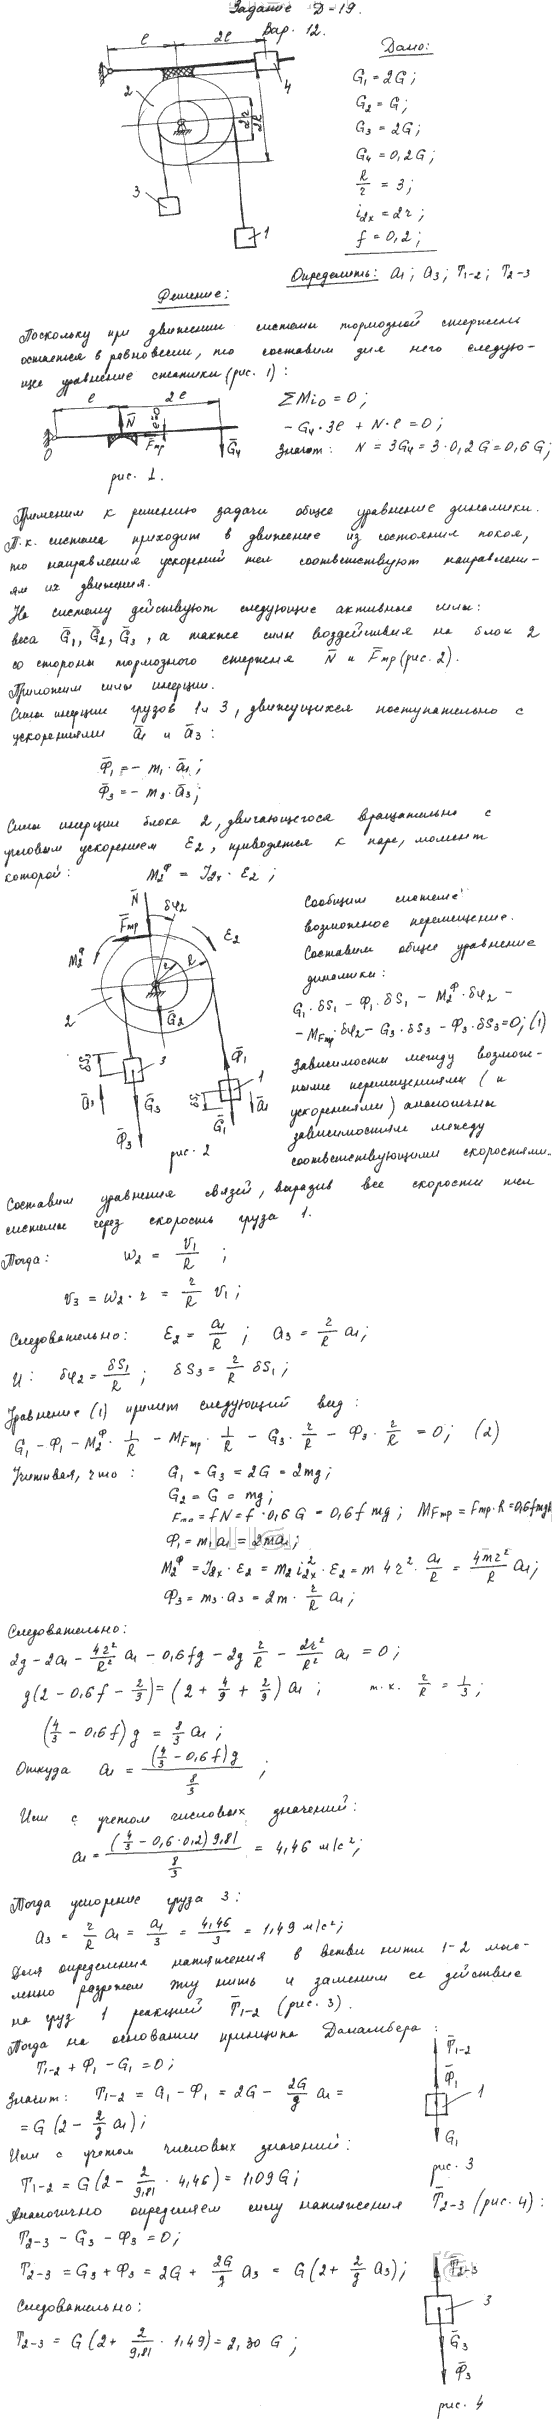 Задание Д-19.
Вар. 12.
l 2l
2 4
2r 2R
3 1
Дано:
G₁ = 2G;
G₂ = G;
G₃ = 2G;
G₄ = 0,2G;
R/r = 3;
i₂ₓ = 2r;
f = 0,2;
Определить: a₁; a₃; T₁₋₂; T₂₋₃
Решение:
Поскольку при движении системы тормозной стержень
остается в равновесии, то составим для него следую-
щее уравнение статики (рис. 1):
l 2l
O N̄ F̄тр Ḡ₄
рис. 1.
ΣMio = 0;
-G₄·3l + N·l = 0;
Значит: N = 3G₄ = 3·0,2G = 0,6G;
Применим к решению задачи общее уравнение динамики.
Т.к. система приходит в движение из состояния покоя,
то направления ускорений тел соответствуют направлени-
ям их движения.
На систему действуют следующие активные силы:
веса Ḡ₁, Ḡ₂, Ḡ₃, а также силы воздействия на блок 2
со стороны тормозного стержня N̄ и F̄тр (рис. 2).
Приложим силы инерции.
Силы инерции грузов 1 и 3, движущихся поступательно с
ускорениями ā₁ и ā₃:
Φ̄₁ = -m₁·ā₁;
Φ̄₃ = -m₃·ā₃;
Силы инерции блока 2, двигающегося вращательно с
угловым ускорением ε₂, приводятся к паре, момент
которой: M₂ᶲ = J₂ₓ·ε₂;
N̄ δφ₂
F̄тр ε₂
M₂ᶲ
r R
2 Ḡ₂
δS₃ 3 Φ̄₁
ā₃ Ḡ₃ δS₁ 1 ā₁
Φ̄₃ Ḡ₁
рис. 2
Сообщим системе
возможное перемещение.
Составим общее уравнение
динамики:
G₁·δS₁ - Φ₁·δS₁ - M₂ᶲ·δφ₂ -
- MFтр·δφ₂ - G₃·δS₃ - Φ₃·δS₃ = 0; (1)
Зависимости между возмож-
ными перемещениями (и
ускорениями) аналогичны
зависимостям между
соответствующими скоростями.
Составим уравнения связей, выразив все скорости тел
системы через скорость груза 1.
Тогда: ω₂ = V₁/R;
V₃ = ω₂·r = r/R V₁;
Следовательно: ε₂ = a₁/R; a₃ = r/R a₁;
И: δφ₂ = δS₁/R; δS₃ = r/R δS₁;
Уравнение (1) примет следующий вид:
G₁ - Φ₁ - M₂ᶲ·1/R - MFтр·1/R - G₃·r/R - Φ₃·r/R = 0; (2)
Учитывая, что: G₁ = G₃ = 2G = 2mg;
G₂ = G = mg;
Fтр = fN = f·0,6G = 0,6fmg; MFтр = Fтр·R = 0,6fmgR
Φ₁ = m₁a₁ = 2ma₁;
M₂ᶲ = J₂ₓ·ε₂ = m₂i₂ₓ²·ε₂ = m4r²·a₁/R = 4mr²/R a₁;
Φ₃ = m₃·a₃ = 2m·r/R a₁;
Следовательно:
2g - 2a₁ - 4r²/R² a₁ - 0,6fg - 2g r/R - 2r²/R² a₁ = 0;
g(2 - 0,6f - 2/3) = (2 + 4/9 + 2/9) a₁; т.к. r/R = 1/3;
(4/3 - 0,6f) g = 8/3 a₁;
Откуда a₁ = (4/3 - 0,6f)g / 8/3;
Или с учетом числовых значений:
a₁ = (4/3 - 0,6·0,2) 9,81 / 8/3 = 4,46 м/с²;
Тогда ускорение груза 3:
a₃ = r/R a₁ = a₁/3 = 4,46/3 = 1,49 м/с²;
Для определения натяжения в ветви нити 1-2 мыс-
ленно разрежем эту нить и заменим ее действие
на груз 1 реакцией T̄₁₋₂ (рис. 3).
Тогда на основании принципа Даламбера:
T₁₋₂ + Φ₁ - G₁ = 0;
Значит: T₁₋₂ = G₁ - Φ₁ = 2G - 2G/g a₁ =
= G(2 - 2/g a₁);
Или с учетом числовых значений:
T₁₋₂ = G(2 - 2/9,81 · 4,46) = 1,09G;
T̄₁₋₂
Φ̄₁
1
G₁
рис. 3
Аналогично определяем силу натяжения T̄₂₋₃ (рис. 4):
T₂₋₃ - G₃ - Φ₃ = 0;
T₂₋₃ = G₃ + Φ₃ = 2G + 2G/g a₃ = G(2 + 2/g a₃);
Следовательно:
T₂₋₃ = G(2 + 2/9,81 · 1,49) = 2,30 G;
T̄₂₋₃
3
Ḡ₃
Φ̄₃
рис. 4